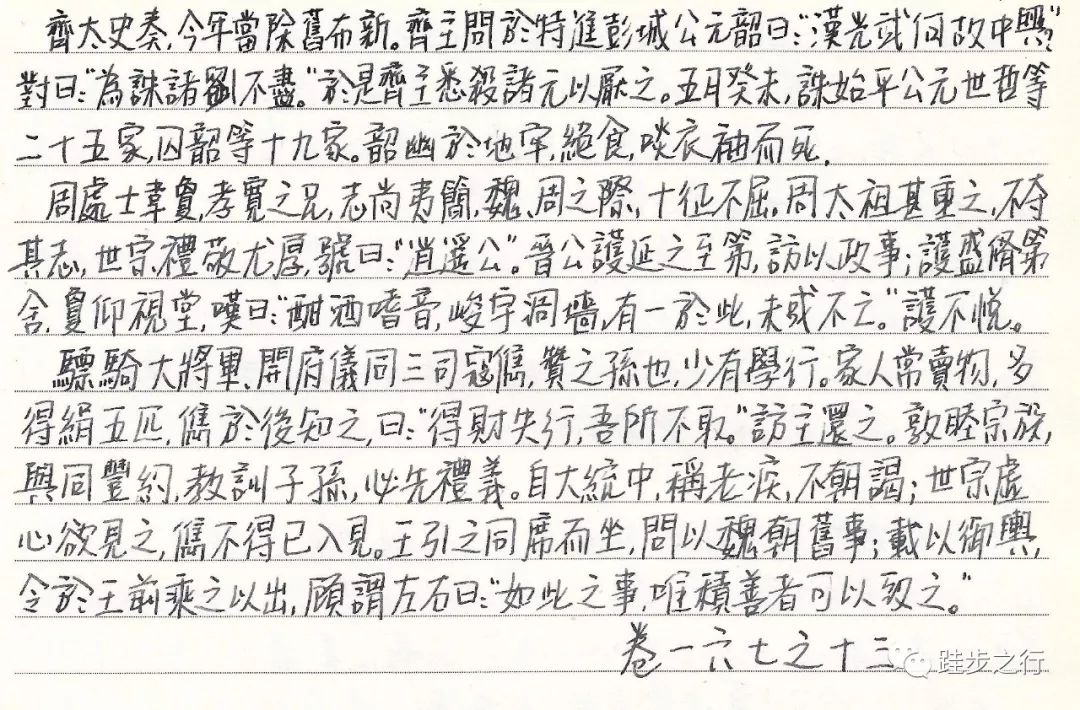 齊太史奏，今年當除舊布新。齊主問於特進彭城公元韶曰：“漢光武何故中興？”
對曰：“為誅諸劉不盡。”於是齊主悉殺諸元以厭之。五月癸未，誅始平公元世哲等
二十五家，囚韶等十九家。韶幽於地牢，絕食，啖衣袖而死。
周處士韋敻，孝寬之兄，志尚夷簡，魏、周之際，十征不屈。周太祖甚重之，不奪
其志，世宗禮敬尤厚，號曰：“逍遥公”。晉公護延之至第，訪以政事；護盛脩第
舍，敻仰視堂，嘆曰：“酣酒嗜音，峻宇洞墻，有一於此，未或不亡。”護不悅。
驃騎大將軍、開府儀同三司寇儁，贊之孫也，少有學行。家人常賣物，多
得絹五匹，儁於後知之，曰：“得財失行，吾所不取。”訪主還之。敦睦宗族，
與同豐約，教訓子孫，必先禮義。自大統中，稱老疾，不朝謁；世宗虛
心欲見之，儁不得已入見。王引之同席而坐，問以魏朝舊事；載以御輿，
令於王前乘之以出，顧謂左右曰：“如此之事，唯積善者可以致之。”
卷一六七之十三
跬步之行